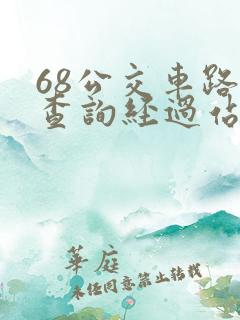 68公交車路
查詢經過佔
華庭
未经同意禁止转载